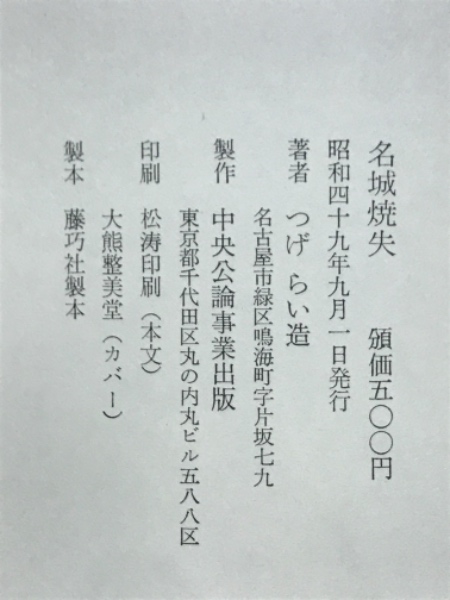 名城焼失　頒価五〇〇円
昭和四十九年九月一日発行
著者　つげ　らい造
名古屋市緑区鳴海町字片坂七九
製作　中央公論事業出版
東京都千代田区丸の内丸ビル五八八区
印刷　松涛印刷（本文）
大熊整美堂（カバー）
製本　藤巧社製本